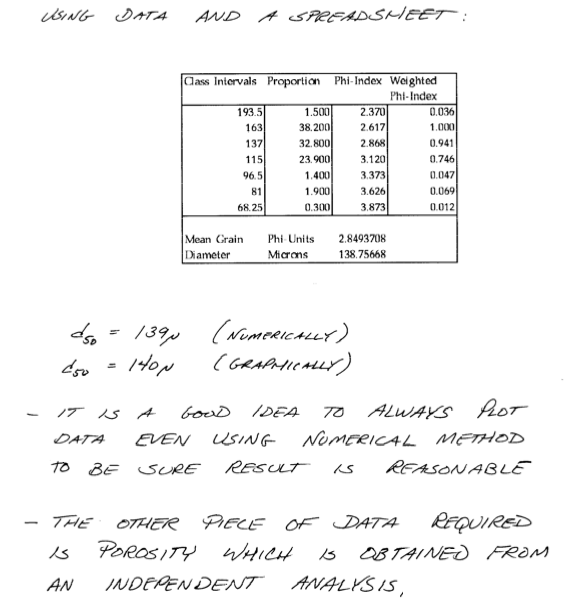 USING DATA AND A SPREADSHEET:
Class Intervals Proportion Phi-Index Weighted
Phi-Index
193.5 1.500 2.370 0.036
163 38.200 2.617 1.000
137 32.800 2.868 0.941
115 23.900 3.120 0.746
96.5 1.400 3.373 0.047
81 1.900 3.626 0.069
68.25 0.300 3.873 0.012
Mean Grain Phi-Units 2.8493708
Diameter Microns 138.75668
d50 = 139μ (NUMERICALLY)
d50 = 140μ (GRAPHICALLY)
- IT IS A GOOD IDEA TO ALWAYS PLOT
DATA EVEN USING NUMERICAL METHOD
TO BE SURE RESULT IS REASONABLE
- THE OTHER PIECE OF DATA REQUIRED
IS POROSITY WHICH IS OBTAINED FROM
AN INDEPENDENT ANALYSIS.